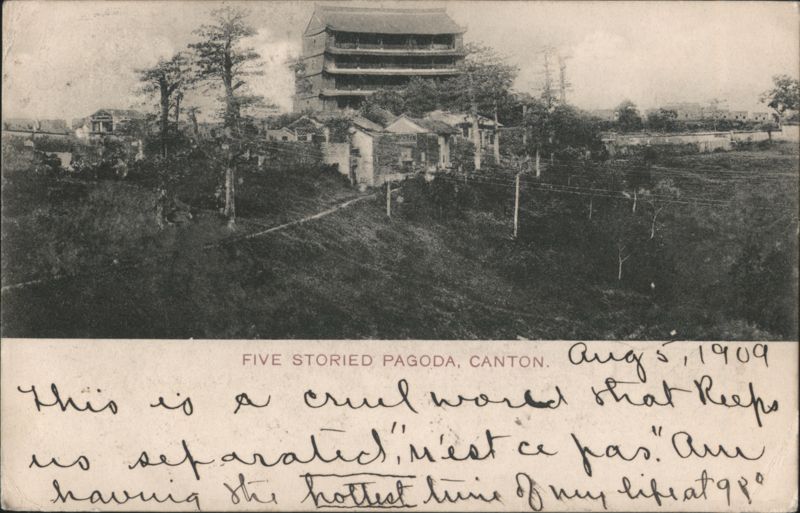 FIVE STORIED PAGODA, CANTON.
Aug 5, 1909
This is a cruel world that keeps
us separated, "n'est ce pas." Am
having the hottest time of my life at 98°